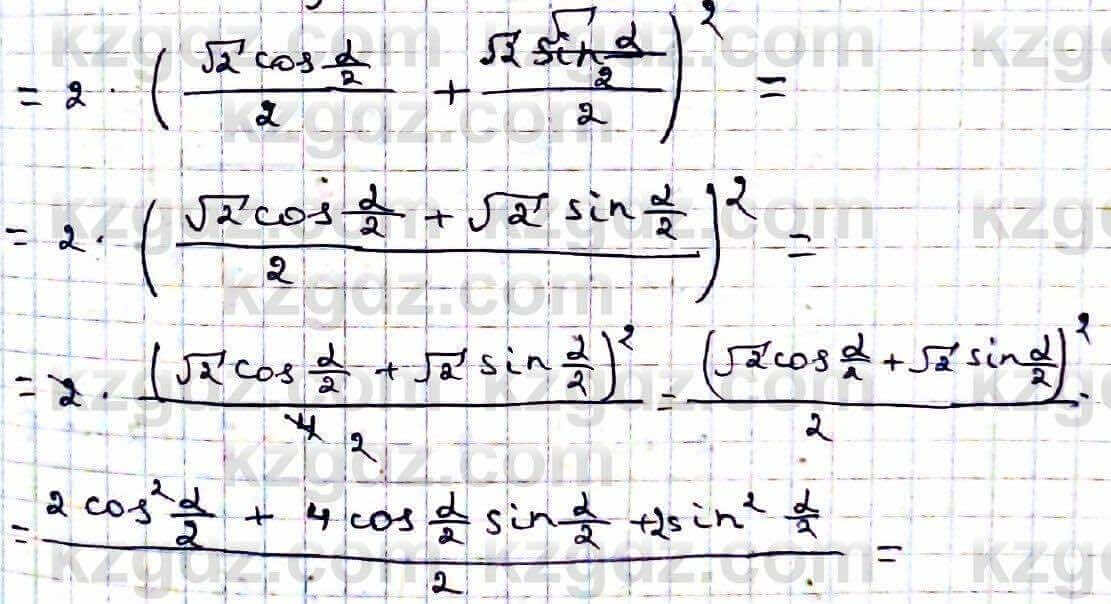 = 2 · ( √2 cos α/2 / 2 + √2 sin α/2 / 2 )² =
= 2 · ( (√2 cos α/2 + √2 sin α/2) / 2 )² =
= 2 · (√2 cos α/2 + √2 sin α/2)² / 4 2 = (√2 cos α/2 + √2 sin α/2)² / 2 ·
= (2 cos² α/2 + 4 cos α/2 sin α/2 + 2 sin² α/2) / 2 =
kzgdz.com